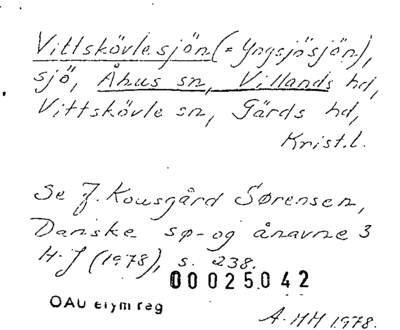 Vittskövlesjön (= Yngsjösjön),
sjö, Åhus sn, Villands hd,
Vittskövle sn, Gärds hd,
Krist.l.
Se J. Kousgård Sørensen,
Danske sø- og ånavne 3
H-J (1978), s. 238.
00025042
OAU etym reg
A. HH 1978.